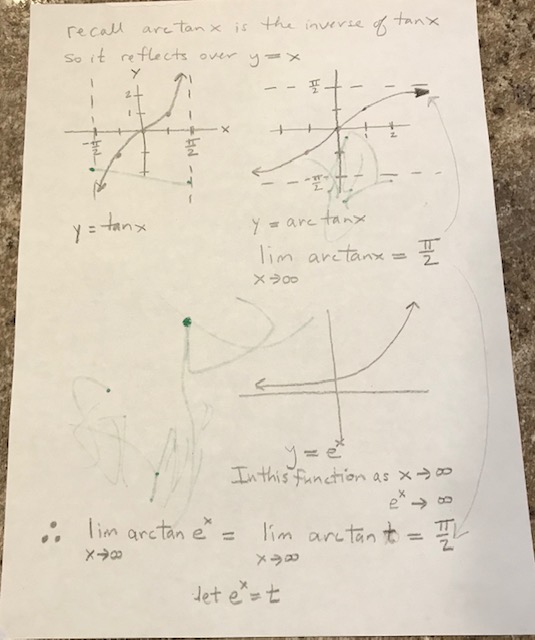 recall arctanx is the inverse of tanx
so it reflects over y=x
y
2
1
x
-π/2
π/2
y = tanx
π/2
1
2
-π/2
y = arctanx
lim arctanx = π/2
x→∞
y = eˣ
In this function as x→∞
eˣ → ∞
∴ lim arctan eˣ = lim arctan t = π/2
x→∞ x→∞
let eˣ = t